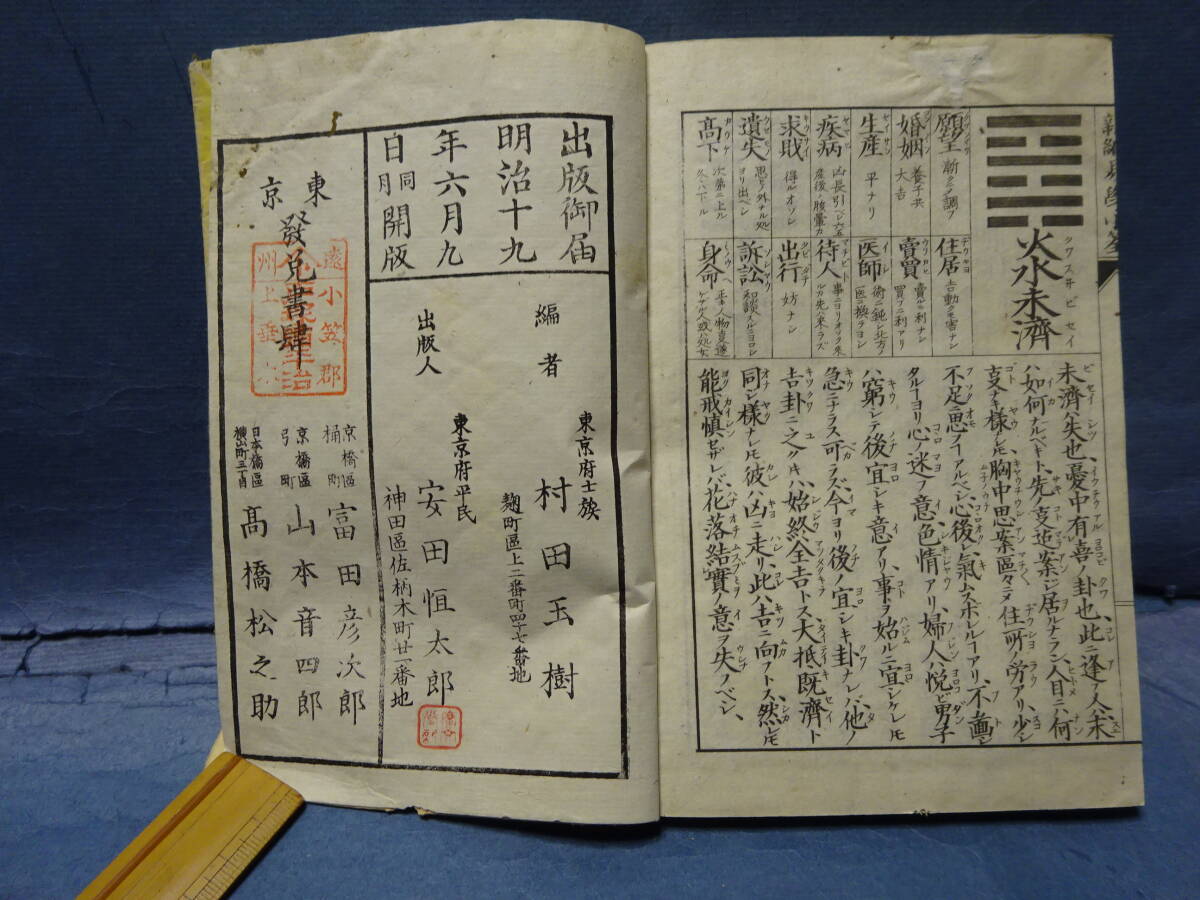 火水未濟
クワスヰビセイ
願望
漸々ニ調フ
婚姻
養子共大吉
生産
平ナリ
疾病
凶長引ベシ
求財
得ルオソシ
遺失
思ヒノ外ナル処ヨリ出ベシ
高下
次第ニ上ル
住居
吉動クモ害ナシ
賣買
賣ルニ利ナシ
買フニ利アリ
医師
術ニ鈍シ北方ノ医ニ換ラヨシ
待人
事ニヨリオソク来ルカ先ハ来ラズ
出行
妨ナシ
訴訟
和談スルニヨロシ
身命
未濟ハ失也、憂中有喜ノ卦也、此ニ逢フ人ハ、未
ハ如何ナルベキト、先ノ支迠案ジ居ルナラン、人目ニハ何
支ナキ様ナレドモ、胸中思案區々ニメ住所ノ労アリ、少シ
不足ニ思フヿアルベシ、心後レ氣ムスボレルヿアリ、不圖シ
タルヿヨリ心迷フノ意、色情アリ、婦人ハ悦ビ男子
ハ窮シテ後宜シキ意アリ、事ヲ始ルニ宜シケレドモ
急ニナラス可ラズ、今ヨリ後ノ宜シキ卦ナレバ、他ノ
吉卦ニ之クキハ、始終全吉トス、大抵既濟ト
同ジ様ナレドモ、彼ハ凶ニ走リ、此ハ吉ニ向フトス、然レドモ
能戒慎セザレバ、花落結實ノ意ヲ失フベシ、
出版御届
明治十九
年六月九
日
同月
開版
編者
東京府士族
村田玉樹
麹町區上二番町四十七番地
出版人
東京府平民
安田恒太郎
神田區佐柄木町廿一番地
東京
發兌書肆
京橋區桶町
富田彦次郎
京橋區弓町
山本音四郎
日本橋區横山町三丁目
髙橋松之助
遠
小笠郡
州上垂木